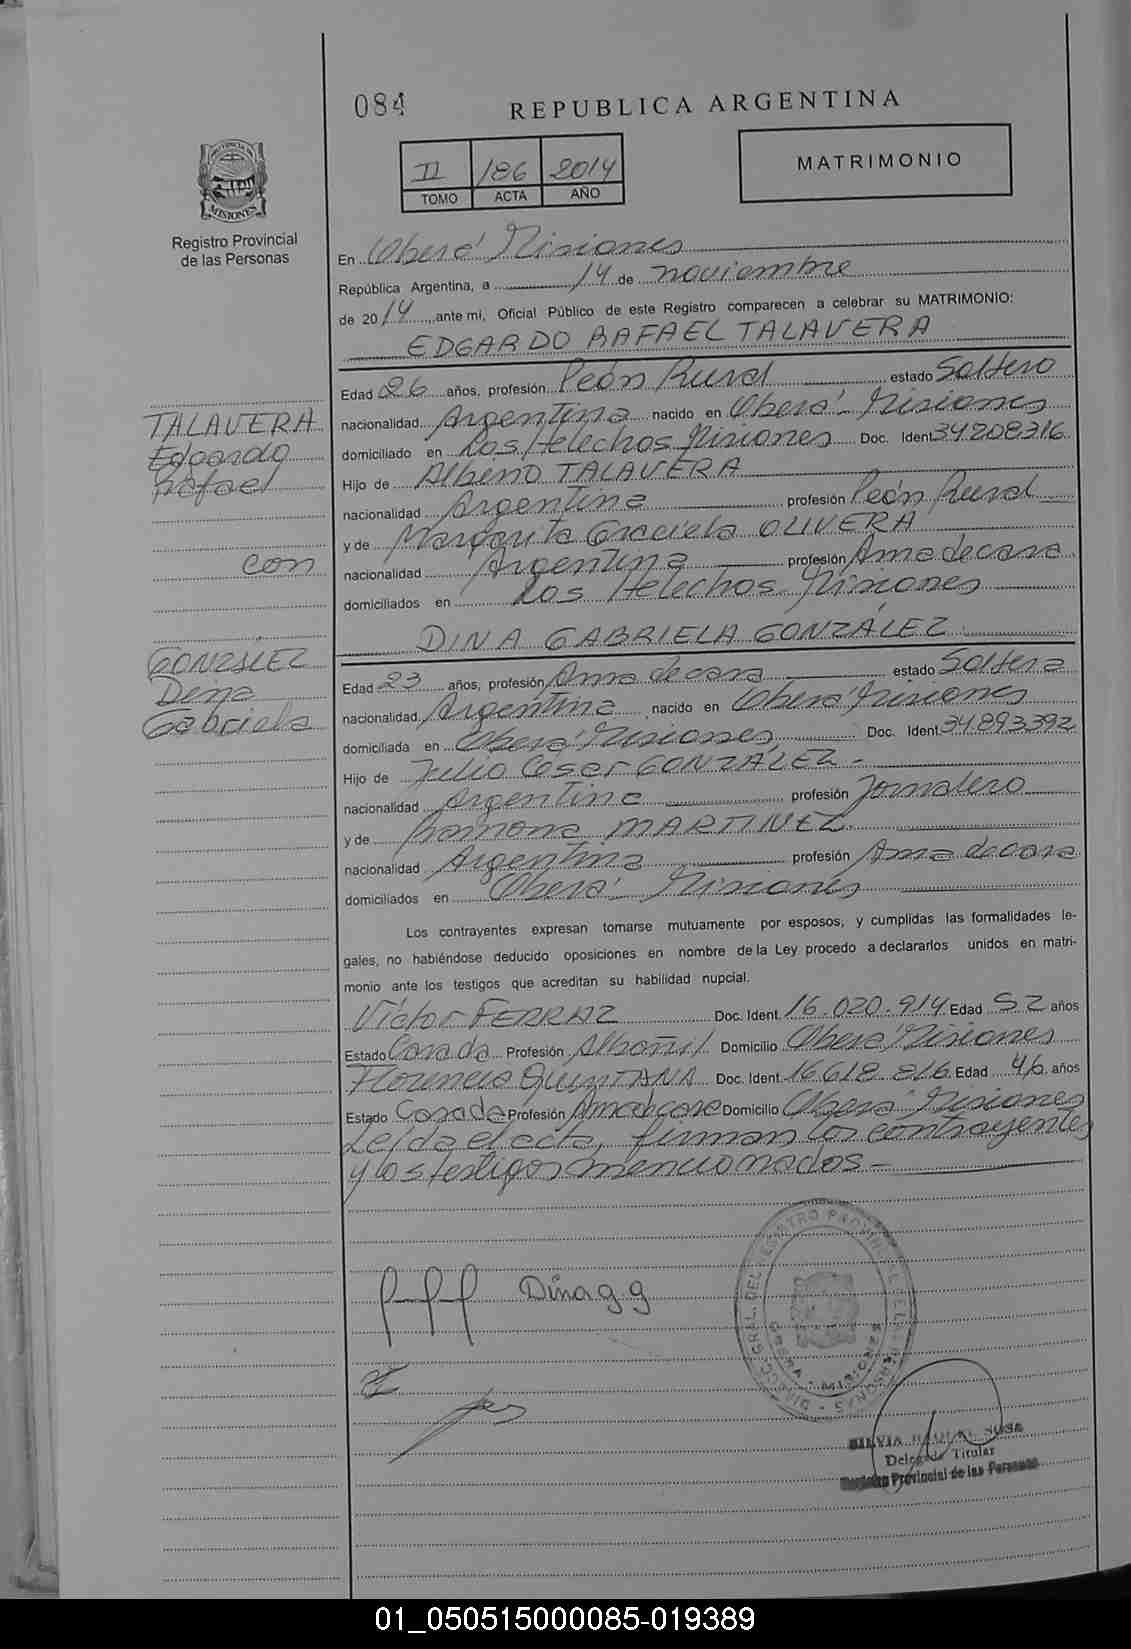 084
REPUBLICA ARGENTINA
II 186 2014
TOMO ACTA AÑO
MATRIMONIO
PROVINCIA DE
MISIONES
Registro Provincial
de las Personas
En Oberá Misiones
República Argentina, a 14 de noviembre
de 2014, ante mi, Oficial Público de este Registro comparecen a celebrar su MATRIMONIO:
EDGARDO RAFAEL TALAVERA
Edad 26 años, profesión Peón Rural estado Soltero
nacionalidad Argentina nacido en Oberá - Misiones
domiciliado en Los Helechos Misiones Doc. Ident 34208316
Hijo de Albino TALAVERA
nacionalidad Argentina profesión Peón Rural
y de Margarita Graciela OLIVERA
nacionalidad Argentina profesión Ama de casa
domiciliados en Los Helechos Misiones
TALAVERA
Edgardo
Rafael
con
GONZALEZ
Dina
Gabriela
DINA GABRIELA GONZÁLEZ
Edad 23 años, profesión Ama de casa estado Soltera
nacionalidad Argentina nacido en Oberá Misiones
domiciliada en Oberá Misiones Doc. Ident 34893392
Hijo de Julio César GONZÁLEZ -
nacionalidad Argentina profesión Jornalero
y de Ramona MARTINEZ
nacionalidad Argentina profesión Ama de casa
domiciliados en Oberá Misiones
Los contrayentes expresan tomarse mutuamente por esposos, y cumplidas las formalidades le-
gales, no habiéndose deducido oposiciones en nombre de la Ley procedo a declararlos unidos en matri-
monio ante los testigos que acreditan su habilidad nupcial.
Víctor FERRAZ Doc. Ident. 16.020.914 Edad 52 años
Estado Casado Profesión Albañil Domicilio Oberá Misiones
Florencia QUINTANA Doc. Ident. 16618816 Edad 46 años
Estado Casada Profesión Ama de casa Domicilio Oberá Misiones
Leída el acta, firman los contrayentes
y los testigos mencionados -
Dina g g
DIRECC. GRAL. DEL REGISTRO PROVINCIAL DE LAS PERSONAS
SILVIA RAQUEL SOSA
Delegada Titular
Registro Provincial de las Personas
01_050515000085-019389